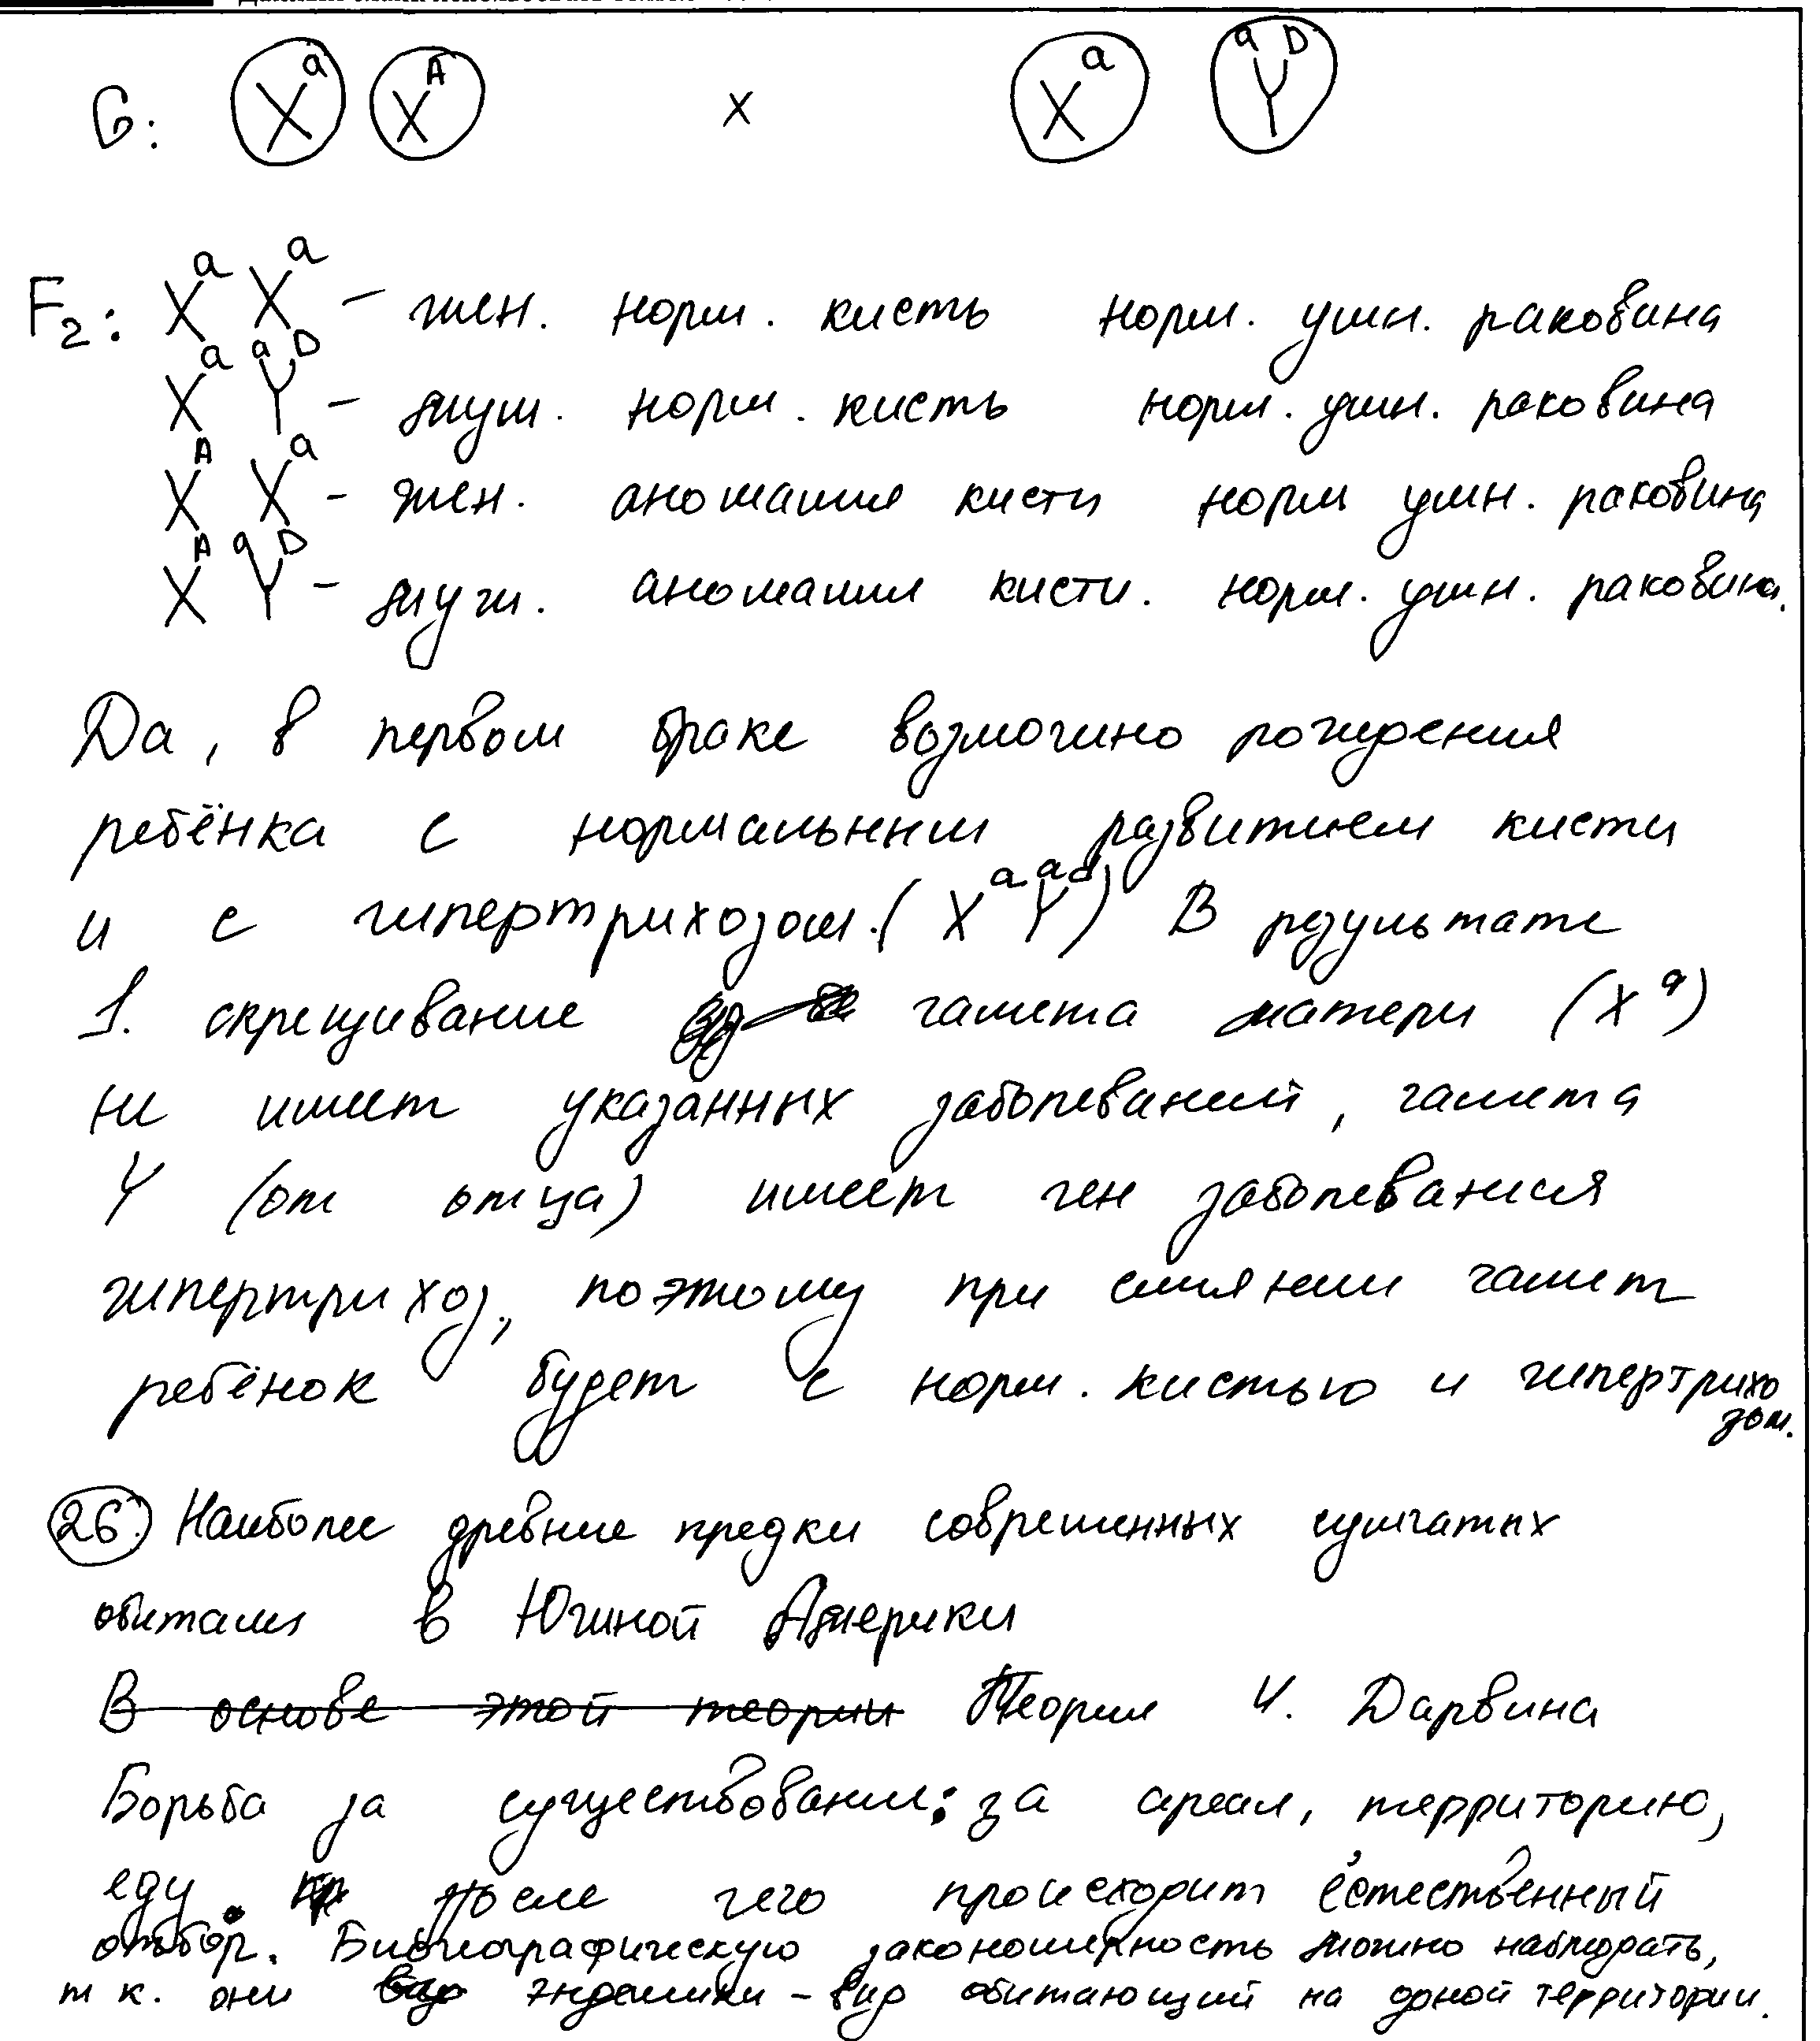 G: X^a X^A x X^a Y^aD
F2: X^a X^a – жен. норм. кисть норм. ушн. раковина
X^a Y^aD – муж. норм. кисть норм. ушн. раковина
X^A X^a – жен. аномалия кисти норм ушн. раковина
X^A Y^aD – муж. аномалия кисти. норм. ушн. раковина.
Да, в первом браке возможно рождения
ребёнка с нормальным развитием кисти
и с гипертрихозом. (X^a Y^ad) В результате
1. скрещивание гамета матери (X^a)
не имеет указанных заболеваний, гамета
Y (от отца) имеет ген заболевания
гипертрихоз, поэтому при слиянии гамет
ребёнок будет с норм. кистью и гипертрихо
зом.
26. Наиболее древние предки современных сумчатых
обитали в Южной Америки
В основе этой теории Теория Ч. Дарвина
Борьба за существование: за ареал, территорию,
еду. после чего происходит естественный
отбор. Биогеографическую закономерность можно наблюдать,
т к. они эндемики – вид обитающий на одной территории.